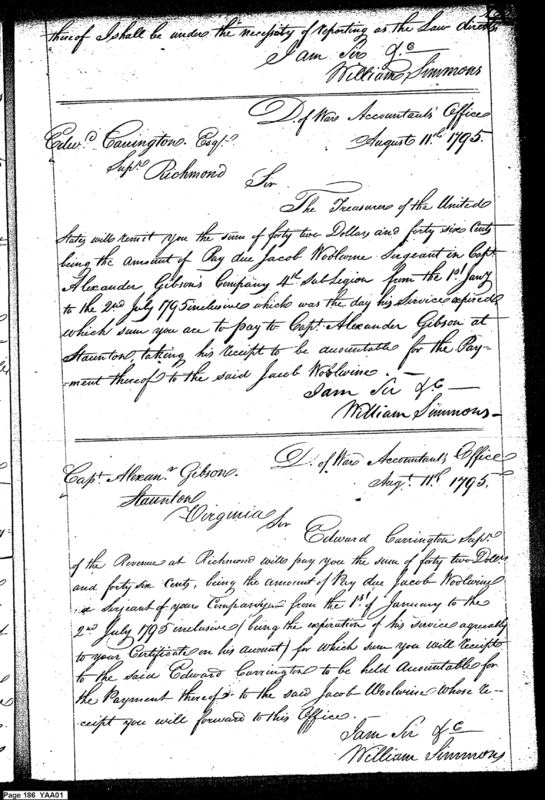 thereof I shall be under the necessity of reporting as the Law directs
I am Sir &c
William Simmons
D. of War Accountants Office
August 11th 1795.
Edwd Carrington Esqr
Supr Richmond
Sir
The Treasurer of the United
States will remit you the sum of forty two Dollars and forty six Cents
being the amount of Pay due Jacob Woolwine Sergeant in Capt
Alexander Gibson's Company 4th Sub Legion from the 1st Jany
to the 2nd July 1795 inclusive which was the day his Service expired
which sum you are to pay to Capt. Alexander Gibson at
Staunton, taking his receipt to be accountable for the Pay-
-ment thereof to the said Jacob Woolwine. -
I am Sir &c
William Simmons
D. of War Accountants Office
Augt. 11th 1795
Capt Alexanr Gibson.
Staunton
Virginia
Sir
Edward Carrington Supr
of the Revenue at Richmond will pay you the sum of forty two Dollars
and forty six Cents, being the amount of Pay due Jacob Woolwine
a sergeant of your Company from the 1st of January to the
2nd July 1795 inclusive (being the expiration of his service agreeably
to your Certificate on his account) for which sum you will receipt
to the said Edward Carrington to be held Accountable for
the Payment thereof to the said Jacob Woolwine whose re-
ceipt you will forward to this Office
I am Sir &c
William Simmons
Page 186 YAA01